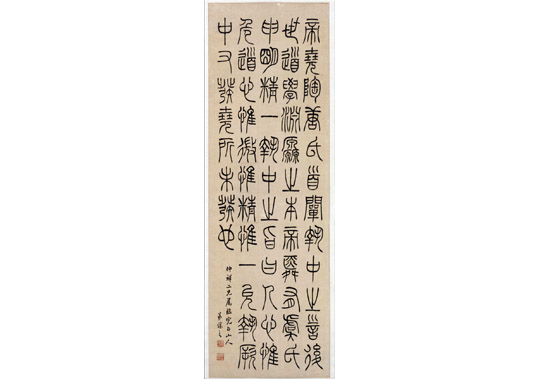 帝堯陶唐氏首闡執中之言後
世道學淵源之本帝舜有虞氏
申明精一執中之旨曰人心惟
危道心惟微惟精惟一允執厥
中又發堯所未發也
二兄屬臨完白山人
弟讓之